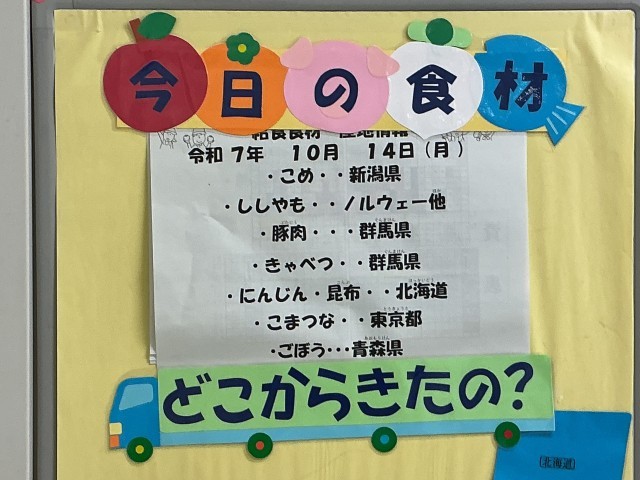 今日の食材
給食食材 産地情報
令和7年 10月 14日(月)
・こめ・・新潟県
・ししやも・・ノルウェー他
・豚肉・・・群馬県
・きゃべつ・・群馬県
・にんじん・昆布・・北海道
・こまつな・・東京都
・ごぼう・・・青森県
どこからきたの?
(北海道)